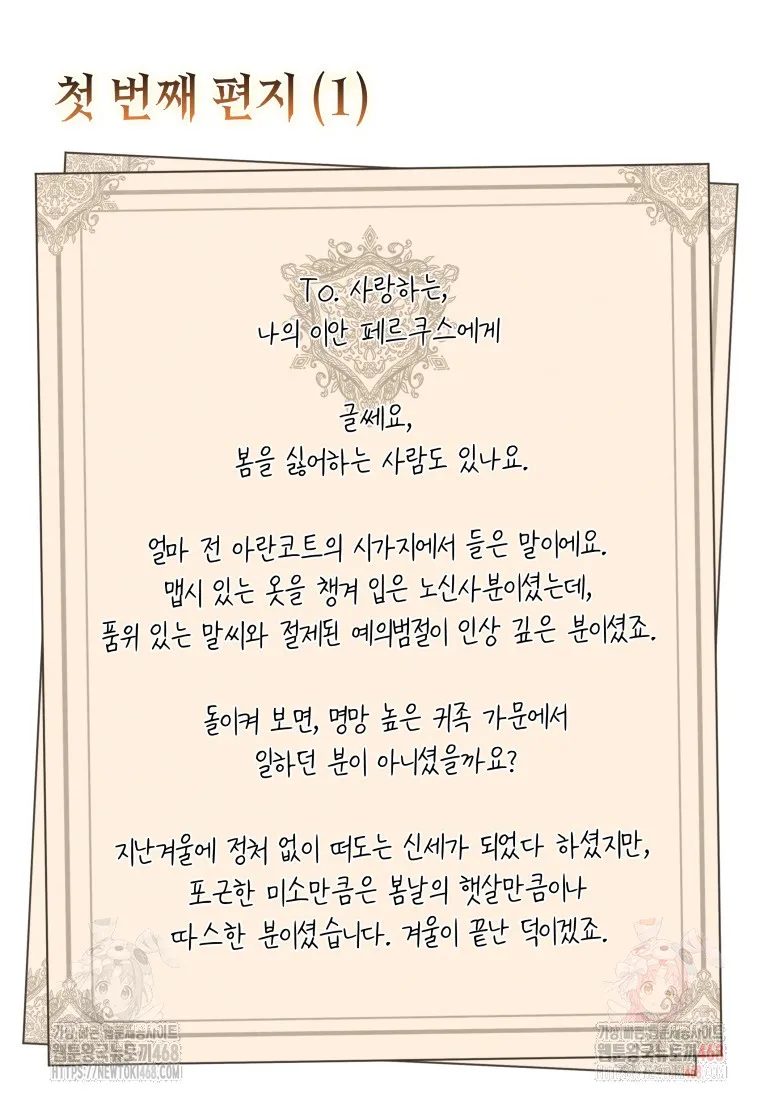 첫 번째 편지 (1)
To. 사랑하는,
나의 이안 페르쿠스에게
글쎄요,
봄을 싫어하는 사람도 있나요.
얼마 전 아란코트의 시가지에서 들은 말이에요.
맵시 있는 옷을 챙겨 입은 노신사분이셨는데,
품위 있는 말씨와 절제된 예의범절이 인상 깊은 분이셨죠.
돌이켜 보면, 명망 높은 귀족 가문에서
일하던 분이 아니셨을까요?
지난겨울에 정처 없이 떠도는 신세가 되었다 하셨지만,
포근한 미소만큼은 봄날의 햇살만큼이나
따스한 분이셨습니다. 겨울이 끝난 덕이겠죠.
가장 빠른 웹툰제공사이트
웹툰왕국뉴토끼468
HTTPS://NEWTOKI468.COM
가장 빠른 웹툰제공사이트
웹툰왕국뉴토끼468
HTTPS://NEWTOKI468.COM